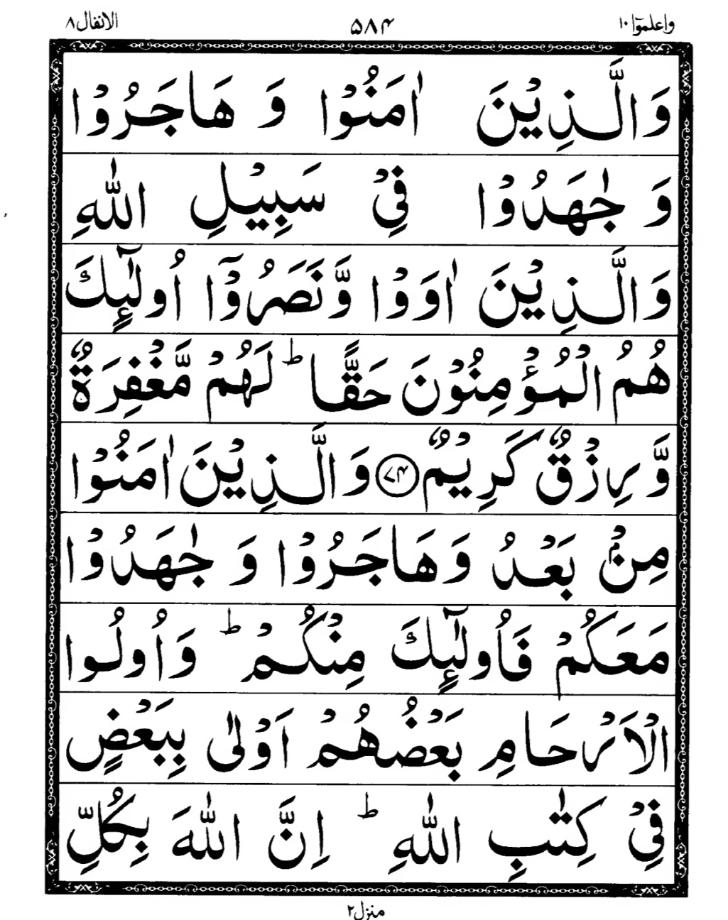 الانفال ۸ ۵۸۴ واعلموٓا ۱۰
وَالَّذِيْنَ اٰمَنُوْا وَ هَاجَرُوْا
وَ جٰهَدُوْا فِيْ سَبِيْلِ اللّٰهِ
وَالَّذِيْنَ اٰوَوْا وَّنَصَرُوْٓا اُولٰٓئِكَ
هُمُ الْمُؤْمِنُوْنَ حَقًّا ؕ لَهُمْ مَّغْفِرَةٌ
وَّرِزْقٌ كَرِيْمٌ ﴿۷۴﴾ وَالَّذِيْنَ اٰمَنُوْا
مِنْۢ بَعْدُ وَهَاجَرُوْا وَ جٰهَدُوْا
مَعَكُمْ فَاُولٰٓئِكَ مِنْكُمْ ؕ وَاُولُوا
الْاَرْحَامِ بَعْضُهُمْ اَوْلٰى بِبَعْضٍ
فِيْ كِتٰبِ اللّٰهِ ؕ اِنَّ اللّٰهَ بِكُلِّ
منزل ۲